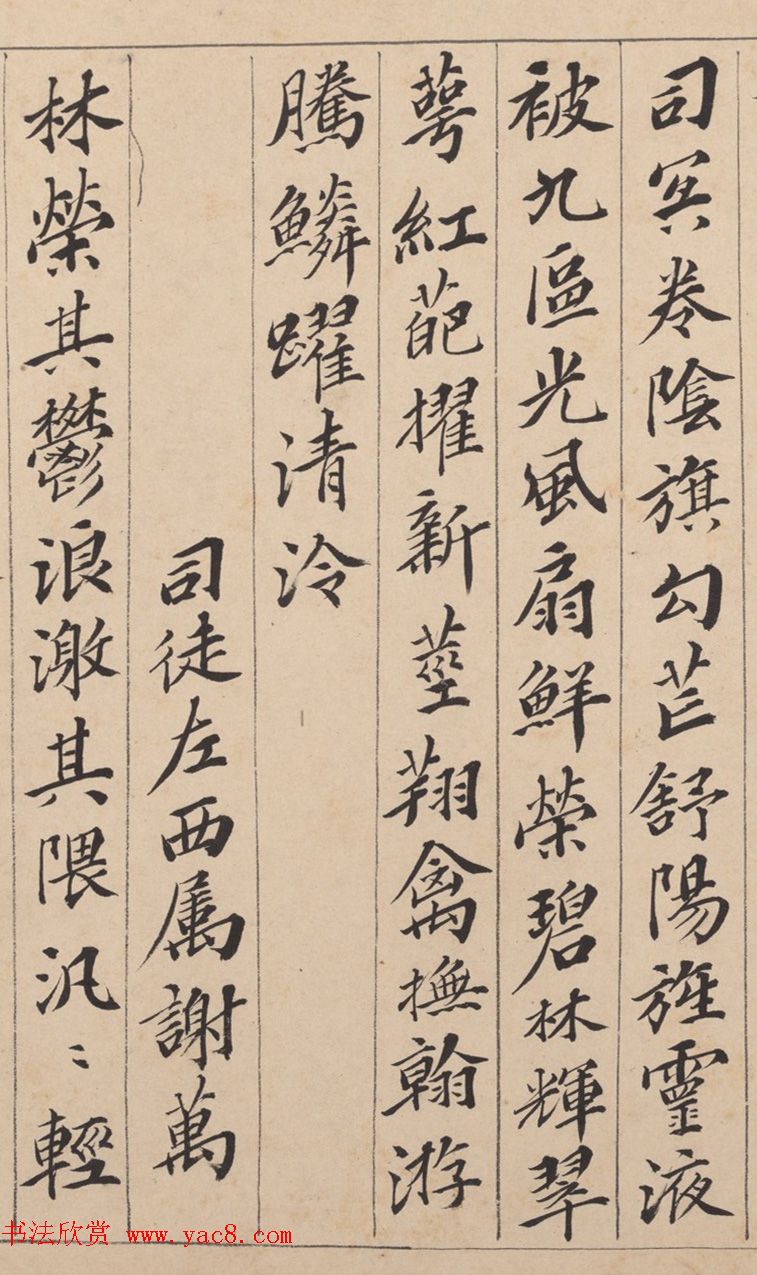 司冥卷陰旗勾芒舒陽旌靈液
被九區光風扇鮮榮碧林輝翠
萼紅葩擢新莖翔禽撫翰游
騰鱗躍清泠
司徒左西属謝萬
林榮其鬱浪激其隈汎〻輕
书法欣赏 www.yac8.com